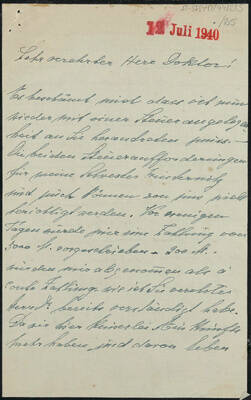 12 Juli 1940
Sehr verehrter Herr Doktor!
Es beschämt mich dass ich nun
wieder mit einer Steuerangelegen-
heit an Sie herandreten muss.
Die beiden Steueraufforderungen
für meine Schwester
und mich können von uns nicht
berichtigt werden. Vor wenigen
Tagen wurde mir eine Zahlung von
vorgeschrieben
mir abgenommen als á
conto Zahlung, wie ich Sie verehrter
bereits verständigt habe.
Da wir hier keinerlei Einkünfte
mehr haben, und davon leben